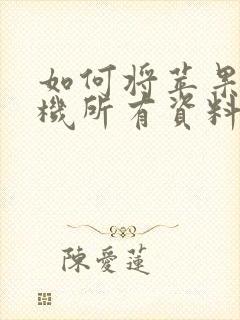 如何将苹果
機所有資料
陳愛蓮